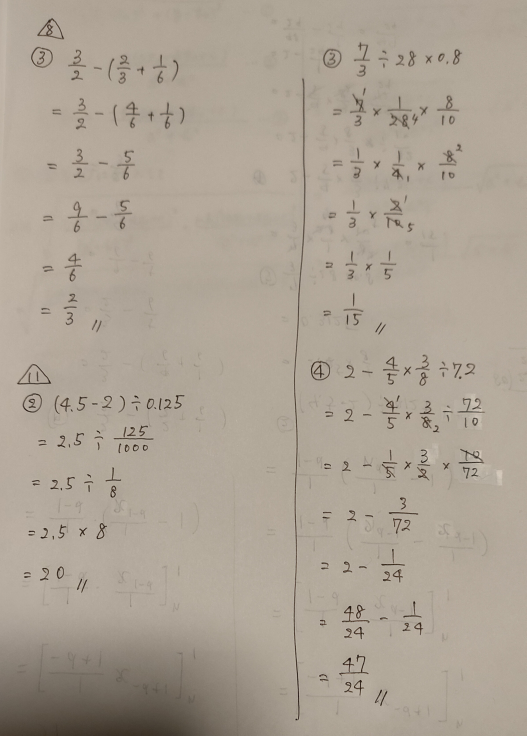 8
③ 3/2 - (2/3 + 1/6)
= 3/2 - (4/6 + 1/6)
= 3/2 - 5/6
= 9/6 - 5/6
= 4/6
= 2/3 //
11
② (4.5 - 2) ÷ 0.125
= 2.5 ÷ 125/1000
= 2.5 ÷ 1/8
= 2.5 × 8
= 20 //
③ 7/3 ÷ 28 × 0.8
= 7 1/3 × 1/28 4 × 8/10
= 1/3 × 1/4 1 × 8 2/10
= 1/3 × 2 1/10 5
= 1/3 × 1/5
= 1/15 //
④ 2 - 4/5 × 3/8 ÷ 7.2
= 2 - 4 1/5 × 3/8 2 ÷ 72/10
= 2 - 1/5 × 3/2 × 10/72
= 2 - 3/72
= 2 - 1/24
= 48/24 - 1/24
= 47/24 //